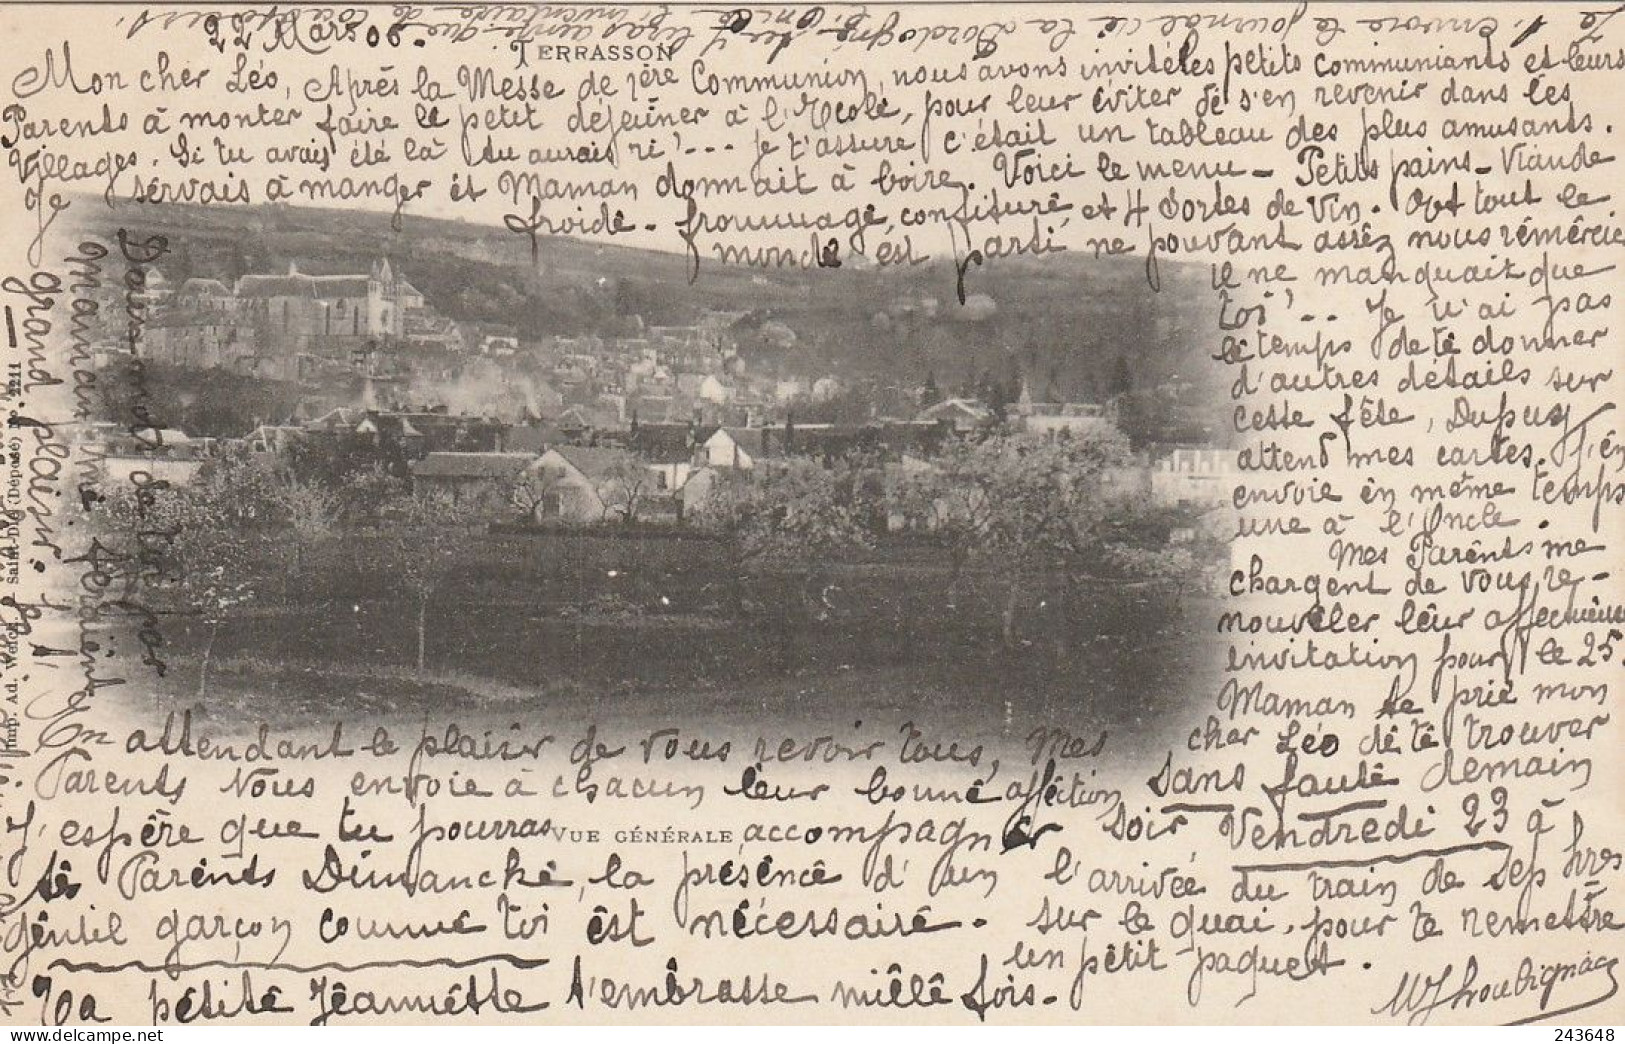 Je t'envoie le journal de la Dordogne
l'inventaire de
22 Mars 06.
TERRASSON
Mon cher Léo, Après la Messe de 1ère Communion, nous avons invité les petits communiants et leurs
Parents à monter faire le petit déjeûner à l'Ecole, pour leur éviter de s'en revenir dans les
Villages. Si tu avais été là tu aurais ri!... je t'assure c'était un tableau des plus amusants.
Je servais à manger et Maman donnait à boire. Voici le menu - Petits pains - Viande
froide - frouuuage, confiture, et 4 Sortes de Vin. Oet tout le
monde est parti ne pouvant assez nous remercie
il ne manquait que
toi!... Je n'ai pas
le temps de te donner
d'autres détails sur
cette fête, Dupuy
attend mes cartes. J'en
envoie en même temps
une à l'Oncle.
Mes Parents me
chargent de vous re-
nouveler leur affectueuse
invitation pour le 25.
Maman te prie mon
cher Léo de te trouver
sans faute demain
soir Vendredi 23 à
l'arrivée du train de sept hres
sur le quai, pour te remettre
un petit paquet.
En attendant le plaisir de vous revoir tous, Mes
Parents vous envoie à chacun leur bonne affection
J'espère que tu pourras accompagner
VUE GÉNÉRALE
tes Parents Dimanche, la présence d'un
gentil garçon comme toi est nécessaire.
Ta petite Jeannette t'embrasse mille fois.
Deux mots de toi
Maman me
grand plaisir.
Imp. Ad. Weick, Saint-Dié (Déposé) no. 2211
243648